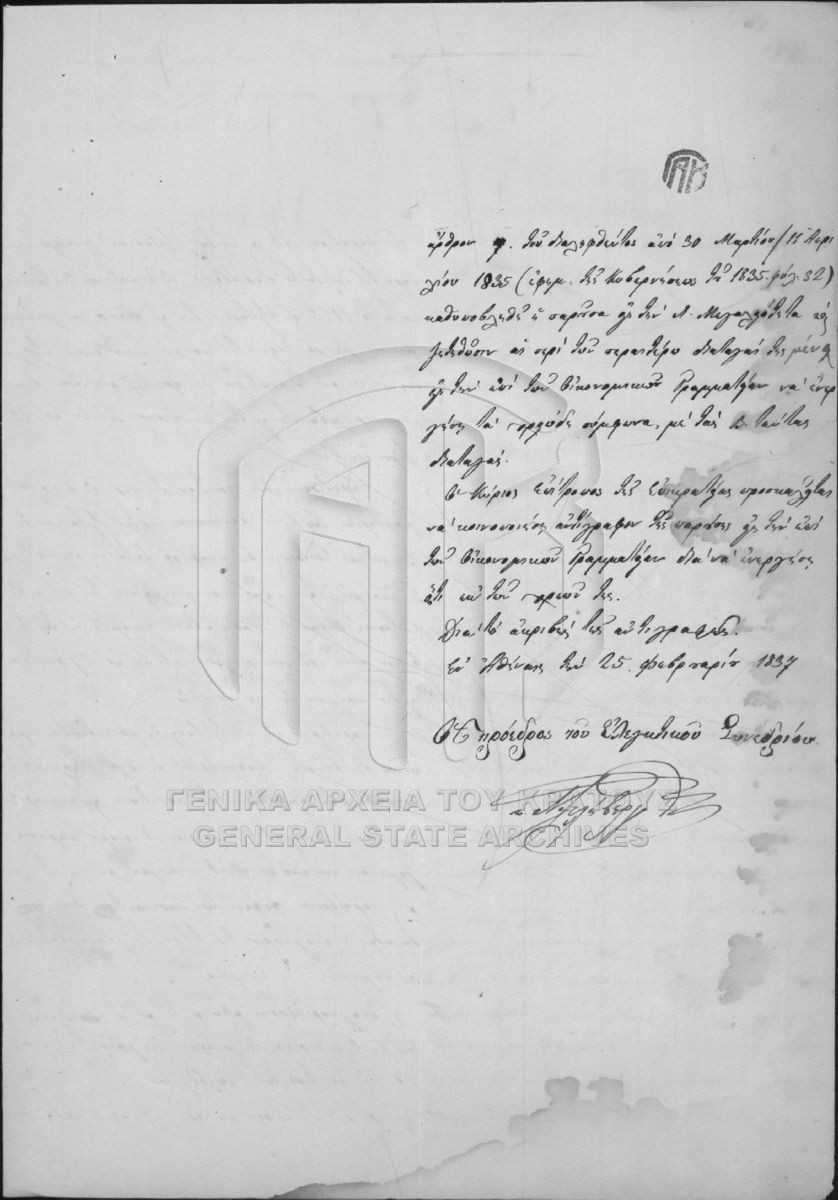 ἄρθρον 7. τοῦ διαληφθέντος ἀπὸ 30 Μαρτίου/11 Ἀπρι
λίου 1835 (ἐφημ. τῆς Κυβερνήσεως τοῦ 1835. φύλ. 32)
καθυποβληθῇ ἡ παροῦσα εἰς τὴν Α. Μεγαλειότητα καὶ
περὶ τοῦ περαιτέρω διαταγαί της
εἰς τὴν ἐπὶ τῶν Οἰκονομικῶν Γραμματείαν νὰ ἐνερ
γήσῃ τὰ σύμφωνα, μὲ τὰς Β. ταύτας
διαταγάς.
Ὁ Κύριος Ἐπίτροπος τῆς Ἐπικρατείας προσκαλεῖται
νὰ κοινοποιήσῃ ἀντίγραφον τῆς παρούσης εἰς τὴν ἐπὶ
τῶν Οἰκονομικῶν Γραμματείαν διὰ νὰ ἐνεργήσῃ
ὅ,τι ἐκ τοῦ χρέους της.
Διὰ τὸ ἀκριβὲς τῆς ἀντιγραφῆς.
Ἐν Ἀθήναις τὴν 25 Φεβρουαρίου 1837
Ὁ Πρόεδρος τοῦ Ἐλεγκτικοῦ Συνεδρίου
ΓΕΝΙΚΑ ΑΡΧΕΙΑ ΤΟΥ ΚΡΑΤΟΥΣ
GENERAL STATE ARCHIVES